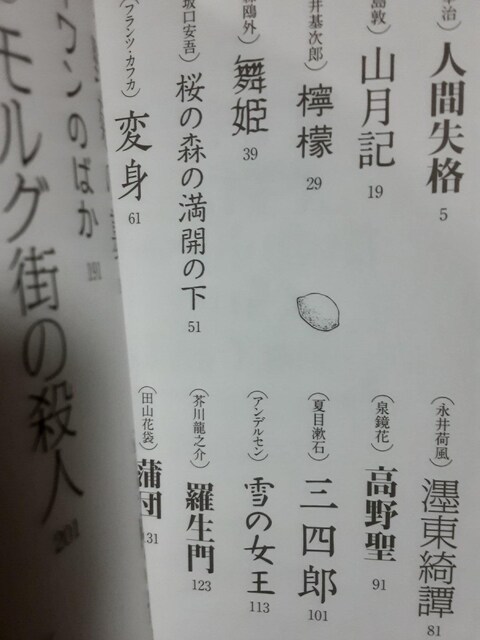 人間失格
5
島敦)
山月記
19
井基次郎)
檸檬
29
鴎外)
舞姫
39
坂口安吾)
桜の森の満開の下
51
(フランツ・カフカ)
変身
61
(永井荷風)
濹東綺譚
81
(泉鏡花)
高野聖
91
(夏目漱石)
三四郎
101
(アンデルセン)
雪の女王
113
(芥川龍之介)
羅生門
123
(田山花袋)
蒲団
131
ワンのばか
191
モルグ街の殺人
201